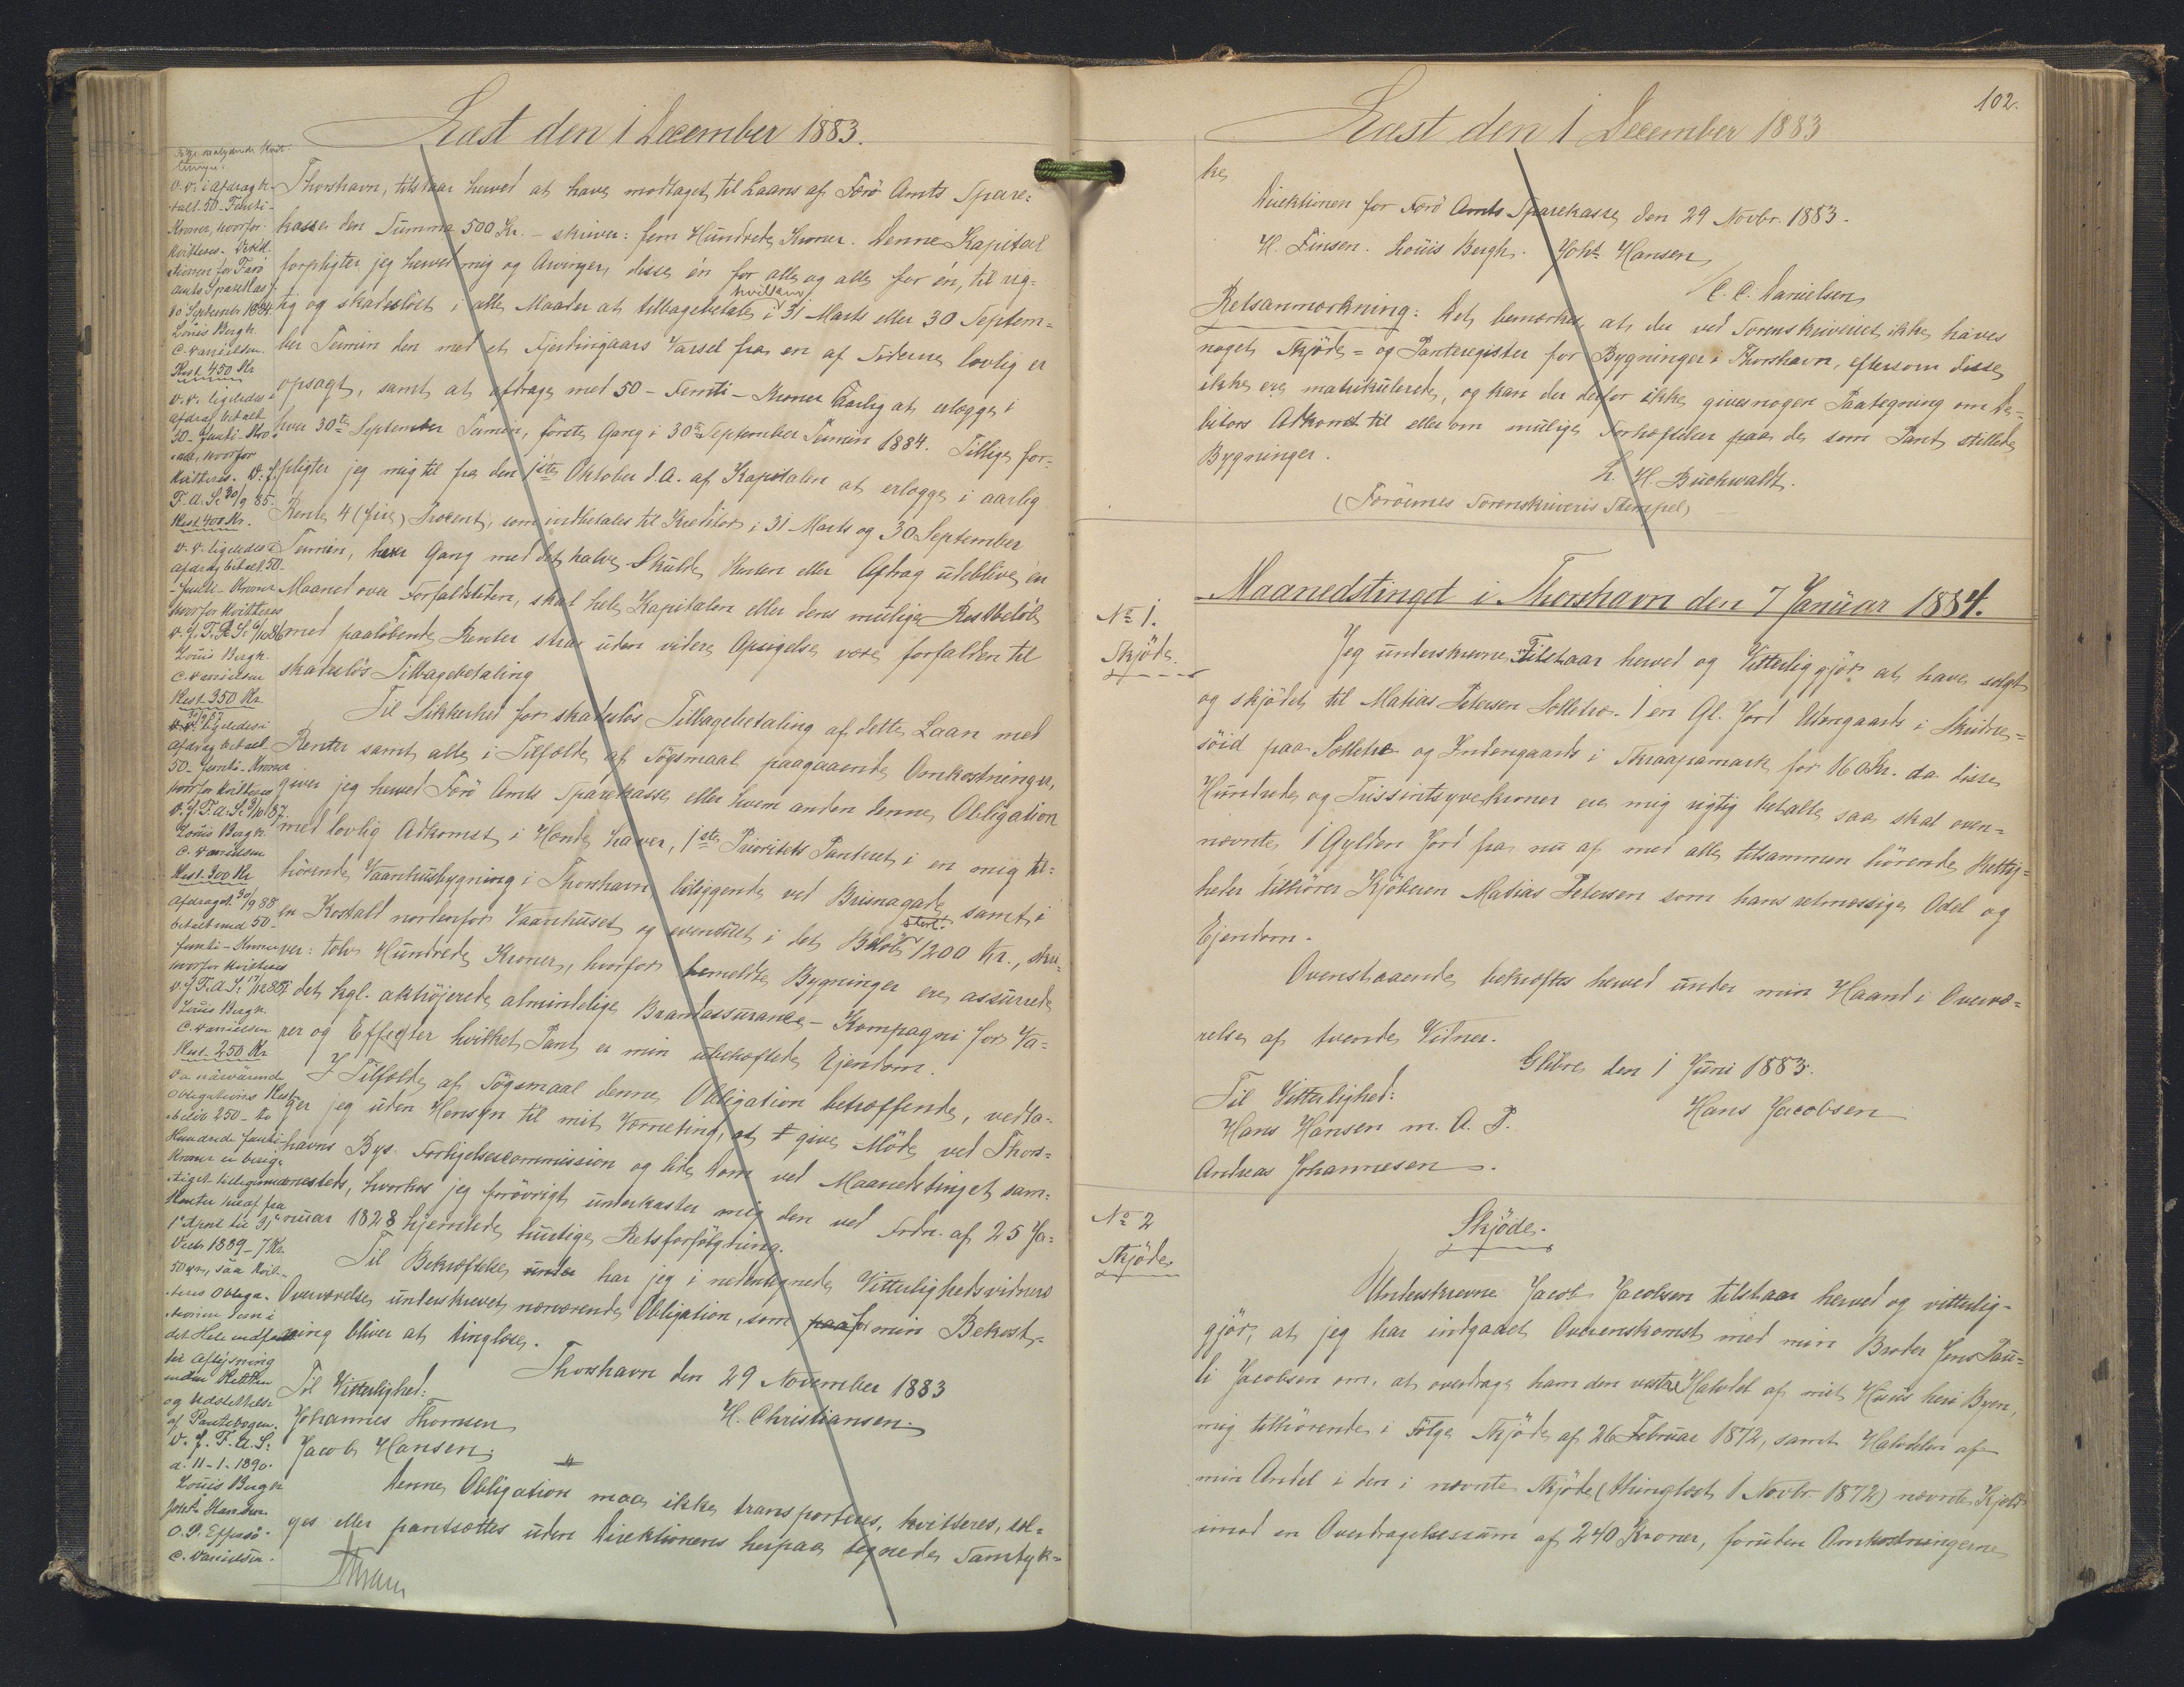 Læst den 1 December 1883.
Thorshavn, tilstaar herved at have modtaget til Laans af Færö Amts Spare=
kasse den Summa 500 Kr. - skriver: fem Hundrede Kroner. Denne Kapital
forpligter jeg herved mig og Arvinger, disse én for alle og alle for én, til rig=
tig og skadeslöst i alle Maader at tilbagebetale i hvilken 31 Marts eller 30 Septem=
ber Termin den med et Fjerdingaars Varsel fra en af Siderne lovlig er
opsagt, samt at afdrage med 50 - Femti - Kroner Aarlig at erlægge i
hver 30te September Termin, förste Gang i 30te September Termin 1884. Tillige for=
pligter jeg mig til fra den 1ste Oktober d.A. af Kapitalen at erlægge i aarlig
Rente 4 (fire) Procent, som indbetales til Kreditor i 31 Marts og 30 September
Termin, hver Gang med det halve. Skulde Renten eller Afdrag udeblive én
Maaned over Forfaldstiden, skal hele Kapitalen eller dens mulige Restbelöb
med paalöbende Renter strax uden videre Opsigelse være forfalden til
skadeslös Tilbagebetaling
Til Sikkerhed for skadeslös Tilbagebetaling af dette Laan med
Renter samt alle i Tilfælde af Sögsmaal paagaaende Omkostninger,
giver jeg herved Færö Amts Sparekasse eller hvem anden denne Obligation
med lovlig Adkomst i Hænde haver, 1ste Prioritets Panteret i en mig til=
hörende Vaanhusbygning i Thorshavn, beliggende ved Bringsnagade, samt i
en Kostald nordenfor Vaanhuset og eventuelt i det Belöb stort 1200 Kr., skri=
ver: tolv Hundrede Kroner, hvorfor bemeldte Bygninger ere assurerede
i det kgl. oktrojerede almindelige Brandassurance-Kompagni for Va=
rer og Effecter hvilket Pant er min ubehæftede Ejendom.
I Tilfælde af Sögsmaal denne Obligation betræffende, vedta=
ger jeg uden Hensyn til mit Værneting, at give Möde ved Thors=
havns Bys Forligelsescommission og lide Dom ved Maanedstinget sam=
mesteds, hvorhos jeg forövrigt underkaster mig den ved Fordn. af 25 Ja=
nuar 1828 hjemlede hurtige Retsforfölgning.
Til Bekræftelse under har jeg i nedentegnede Vitterlighedsvidners
Overværelse underskrevet nærværende Obligation, som paa for min Bekost=
ning bliver at tinglæse.
Thorshavn den 29 November 1883
Til Vitterlighed:
H. Christiansen.
Johannes Thomsen
Jacob Hansen.
Denne Obligation maa ikke transporteres, kvitteres, sæl=
ges eller pantsættes uden Direktionens herpaa tegnede Samtyk=
v.v. i Afdrag be-
talt 50 - Femti -
Kroner, hvorfor
kvitteres. Direk-
tionen for Færö
Amts Sparekas-
10 September 1884
Louis Bergh.
C. Danielsen.
Rest 450 Kr
v.v. ligeledes i
Afdrag betalt
50 - Femti - Kro-
ner, hvorfor
kvitteres. D. f.
F. A. S. 30/9 85.
Rest 400 Kr.
v.v. ligeledes i
Afdrag betalt 50 -
- femti - Kroner
hvorfor kvitteres
D. f. F. A. S. 6/10 86
Louis Bergh.
C. Danielsen
Rest 350 Kr
30/9 87
v.v. ligeledes i
Afdrag betalt
50 - femti - Kroner
hvorfor kvitteres
D. f. F. A. S. 3/10 87
Louis Bergh.
C. Danielsen
Rest 300 Kr
Afdraget 30/9 88
betalt med 50 -
femti - Kroner
hvorfor kvitteres
D. f. F. A. S. 17/12 88
Louis Bergh.
C. Danielsen
Rest 250 Kr
Da nærværende
Obligations Rest
beløb 250 - to
Hundrede femti
Kroner er berig-
tiget tilligemed
Renter heraf fra
1ste April til 31te
Decbr 1889 - 7 Kr
50 Øre, saa kvit-
teres Obliga-
tionen som i
det Hele indfriet
til Aflysning
inden Retten
og Udslettelse
af Pantebogen.
D. f. F. A. S.
d. 11-1-1890.
Louis Bergh
Johs Hansen
O. P. Effersö.
C. Danielsen.
102.
Læst den 1 December 1883
ke
Direktionen for Færö Amts Sparekasse, den 29 Novbr. 1883.
H. Finsen. Louis Bergh. Johs Hansen
/C. C. Danielsen
Retsanmærkning: Det bemærkes, at der ved Sorenskriveriet ikke haves
noget Skjöde= og Panteregister for Bygninger i Thorshavn, eftersom disse
ikke ere matrikulerede, og kan der derfor ikke gives nogen Paategning om De=
bitors Adkomst til eller om mulige Forhæftelser paa de som Pant stillede
Bygninger.
L. H. Buchwaldt.
(Færöernes Sorenskriveris Stempel)
Maanedstinget i Thorshavn den 7 Januar 1884.
No 1.
Skjöde.
Jeg underskrevne Tilstaar herved og Vitterlig gjör at have solgt
og skjödet til Matias Petersen Selletræ. 1 en Gl. Jord Udengaards i Skidre=
söid paa Selletræ og Indengaards i Skraapamark for 160 Kr. da disse
Hundrede og Trissintsyvekroner ere mig rigtig betalte saa skal oven=
nævnte 1 Gylden Jord fra nu af med alle tilsammen hörende Rettig=
heder tilhörer Kjöberen Matias Petersen som hans retmæssige Odel og
Ejendom.
Ovenstaaende bekræftes herved under min Haand i Overvæ=
relse af tvende Vidner.
Glibre den 1 Juni 1883.
Til Vitterlighed:
Hans Jacobsen
Hans Hansen m. A. P.
Andreas Johannesen.
No 2
Skjöde
Skjöde.
Underskrevne Jacob Jacobsen tilstaar herved og vitterlig=
gjör, at jeg har indgaaet Overenskomst med min Broder Jens Pau=
li Jacobsen om, at overdrage ham den vestre Halvdel af mit Huus heri Byen,
mig tilhörende i Fölge Skjöde af 26 Februar 1872, samt Halvdelen af
min Andel i den i nævnte Skjöde (thinglæst 1 Novbr. 1872) nævnte Kjeld
imod en Overdragelsessum af 240 Kroner, foruden Omkostningerne